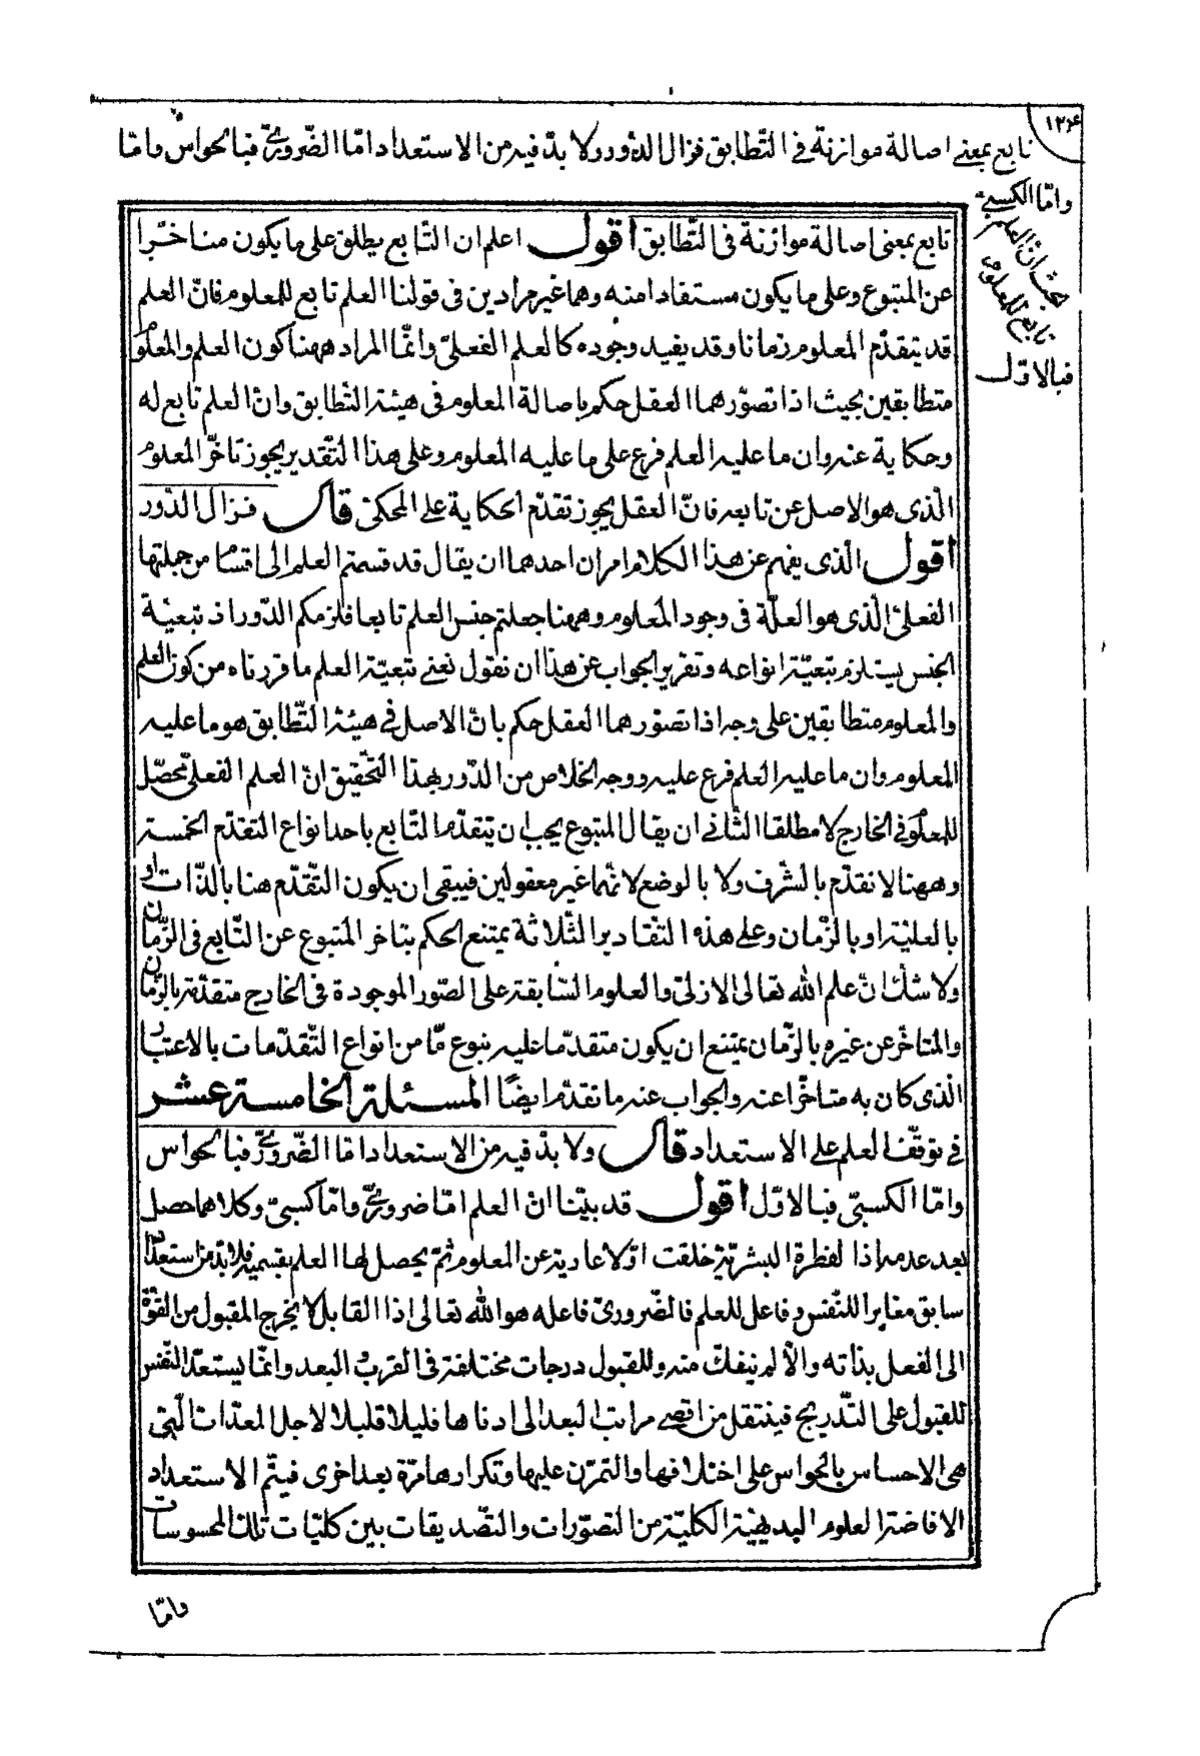 ۱۲۴
تابع بمعنى اصالة موازنة فى التّطابق فزال الدّور ولا بدّ فيه من الاستعداد امّا الضّرورىّ فبالحواسّ وامّا
وامّا الكسبىّ
فبالاوّل
بحث انّ العلم
تابع للمعلوم
تابع بمعنى اصالة موازنة فى التّطابق اقول اعلم ان التّابع يطلق على ما يكون متاخّرا
عن المتبوع وعلى ما يكون مستفادا منه وهما غير مرادين فى قولنا العلم تابع للمعلوم فانّ العلم
قد يتقدّم المعلوم زمانا وقد يفيد وجوده كالعلم الفعلىّ وانّما المراد ههنا كون العلم والمعلوم
متطابقين بحيث اذا تصوّرهما العقل حكم باصالة المعلوم فى هيئة التّطابق وانّ العلم تابع له
وحكاية عنه وان ما عليه العلم فرع على ما عليه المعلوم وعلى هذا التّقدير يجوز تاخّر المعلوم
الّذى هو الاصل عن تابعه فانّ العقل يجوز تقدّم الحكاية على المحكى قال فزال الدّور
اقول الّذى يفهم عن هذا الكلام امران احدهما ان يقال قد قسمتم العلم الى اقسام من جملتها
الفعلىّ الّذى هو العلّة فى وجود المعلوم وههنا جعلتم جنس العلم تابعا فلزمكم الدّور اذ تبعيّة
الجنس يستلزم تبعيّة انواعه وتقرير الجواب عن هذا ان نقول نعنى تبعيّة العلم ما قررناه من كون العلم
والمعلوم متطابقين على وجه اذا تصوّرهما العقل حكم بانّ الاصل فى هيئة التّطابق هو ما عليه
المعلوم وان ما عليه العلم فرع عليه ووجه الخلاص من الدّور بهذا التّحقيق انّ العلم الفعلى محصّل
للمعلوم فى الخارج لا مطلقا الثّانى ان يقال المتبوع يجب ان يتقدّم التّابع باحد انواع التقدّم الخمسة
وههنا لا تقدّم بالشّرف ولا بالوضع لانّهما غير معقولين فيبقى ان يكون التّقدّم هنا بالذّات او
بالعليّة او بالزّمان وعلى هذه التقادير الثّلاثة يمتنع الحكم بتاخر المتبوع عن التّابع فى الزّمان
ولا شكّ انّ علم الله تعالى الازلىّ والعلوم السّابقة على الصّور الموجودة فى الخارج متقدّمة بالزّمان
والمتاخّر عن غيره بالزّمان يمتنع ان يكون متقدّما عليه بنوع مّا من انواع التّقدّمات بالاعتبار
الّذى كان به متاخّرا عنه والجواب عنه ما تقدّم ايضًا المسئلة الخامسة عشر
فى توقّف العلم على الاستعداد قال ولا بدّ فيه من الاستعداد امّا الضّرورىّ فبالحواس
وامّا الكسبىّ فبالاوّل اقول قد بيّنا انّ العلم امّا ضرورىّ وامّا كسبىّ وكلاهما حصل
بعد عدمه اذ الفطرة البشريّة خلقت اوّلا عارية عن المعلوم ثمّ يحصل لها العلم بقسميه فلا بدّ من استعداد
سابق مغاير للنّفس وفاعل للعلم فالضّرورىّ فاعله هو الله تعالى اذ القابل لا يخرج المقبول من القوّة
الى الفعل بذاته والّا لم ينفكّ منه وللقبول درجات مختلفة فى القرب البعد وانّما يستعدّ النّفس
للقبول على التّدريج فينتقل من اقصى مراتب البعد الى ادناها قليلا قليلا لاجل المعدّات الّتى
هى الاحساس بالحواس على اختلافها والتمرّن عليها وتكرارها مرّة بعد اخرى فيتمّ الاستعداد
الافاضة العلوم البديهيّة الكليّة من التصوّرات والتّصديقات بين كليّات تلك المحسوسات
وامّا